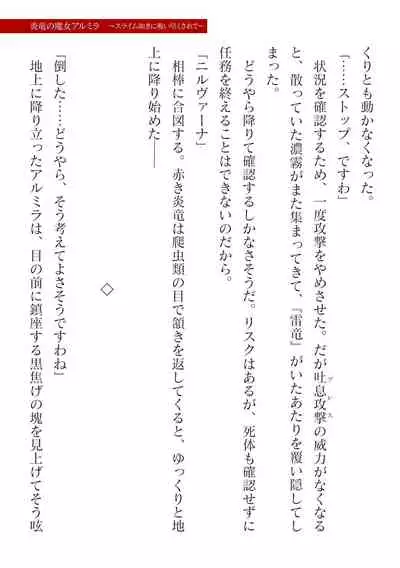 炎竜の魔女アルミラ ～スライム如きに吸い尽くされて～
くりとも動かなくなった。
「……ストップ、ですわ」
状況を確認するため、一度攻撃をやめさせた。だが吐息攻撃の威力がなくなる
ブレス
と、散っていた濃霧がまた集まってきて、『雷竜』がいたあたりを覆い隠してし
まった。
どうやら降りて確認するしかなさそうだ。リスクはあるが、死体も確認せずに
任務を終えることはできないのだから。
「ニルヴァーナ」
相棒に合図する。赤き炎竜は爬虫類の目で頷きを返してくると、ゆっくりと地
上に降り始めた――
◇
「倒した……どうやら、そう考えてよさそうですわね」
地上に降り立ったアルミラは、目の前に鎮座する黒焦げの塊を見上げてそう呟